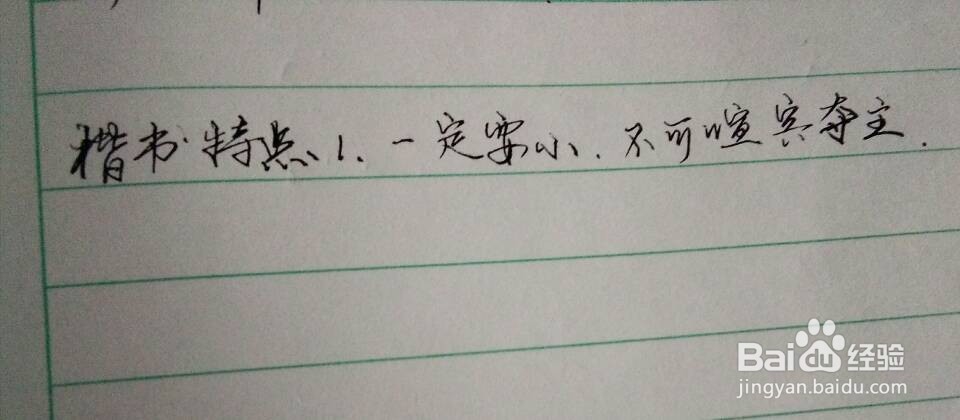 楷书特点1、一定要小.不可喧宾夺主.
Baidu经验
jingyan.baidu.com